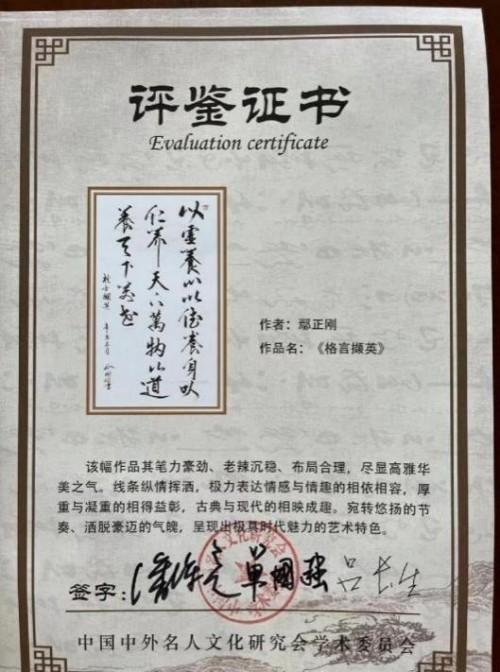 评鉴证书
Evaluation certificate
以虚养心以德养身以
仁养天下万物以道
养天下万世
作者：鄢正刚
作品名：《格言撷英》
该幅作品其笔力豪劲、老辣沉稳、布局合理，尽显高雅华
美之气。线条纵情挥洒，极力表达情感与情趣的相依相容，厚
重与凝重的相得益彰，古典与现代的相映成趣。宛转悠扬的节
奏、洒脱豪迈的气魄，呈现出极具时代魅力的艺术特色。
签字：
中国中外名人文化研究会学术委员会